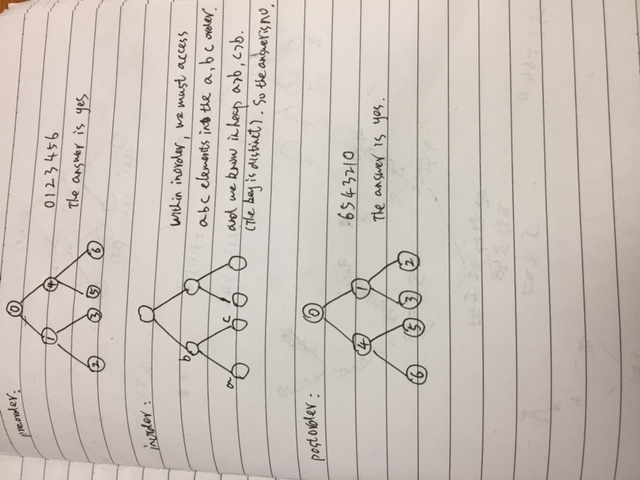 preorder:
0
1 4
2 3 5 6
0123456
The answer is yes
inorder:
b
a c
Within inorder, we must access
a b c elements into the a, b c order.
and we know in heap a>b, c>b.
(The key is distinct). So the answer is no.
postorder:
0
4 1
6 5 3 2
6543210
The answer is yes.